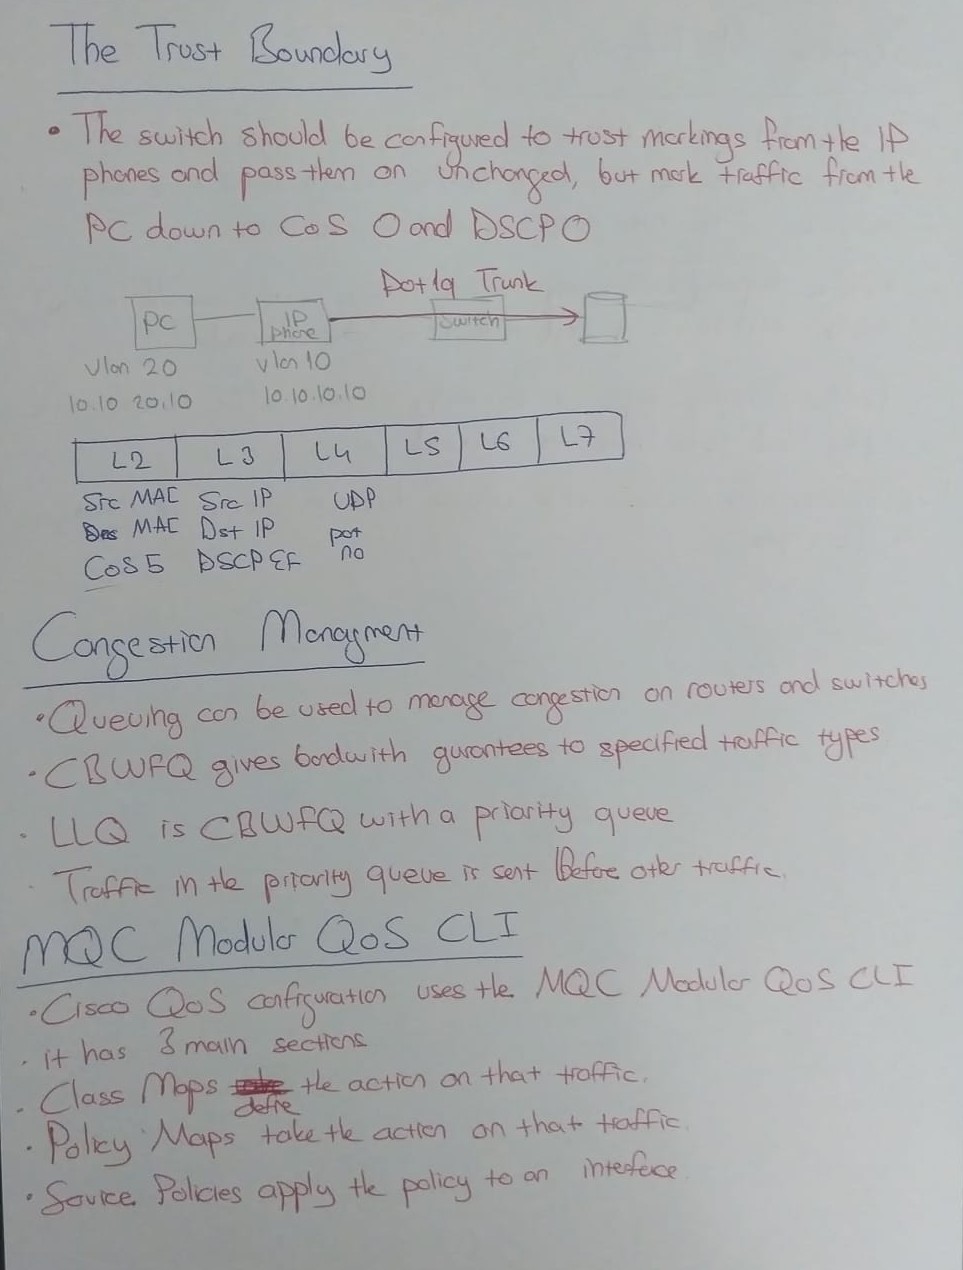 The Trust Boundary
• The switch should be configured to trust markings from the IP
phones and pass them on unchanged, but mark traffic from the
PC down to CoS 0 and DSCP 0
Dot1q Trunk
PC
IP
phone
switch
vlan 20
vlan 10
10.10 20.10
10.10.10.10
L2 L3 L4 L5 L6 L7
Src MAC Src IP UDP
Des MAC Dst IP pot
no
CoS 5 DSCP EF
Congestion Managment
• Queuing can be used to manage congestion on routers and switches
• CBWFQ gives bandwith gurantees to specified traffic types
• LLQ is CBWFQ with a priority queue
• Traffic in the priority queue is sent Before other traffic.
MQC Modular QoS CLI
• Cisco QoS configuration uses the MQC Modular QoS CLI
• it has 3 main sections
• Class Maps defie the action on that traffic.
• Policy Maps take the action on that traffic.
• Service Policies apply the policy to an interface.